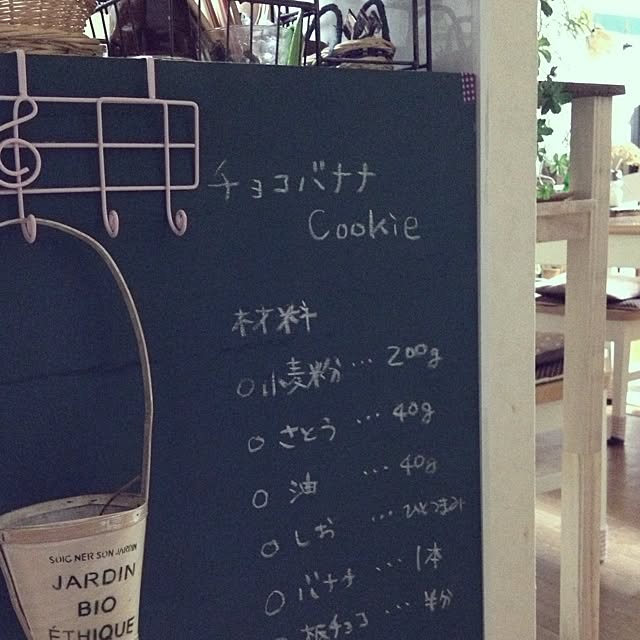 チョコバナナ
Cookie
材料
○小麦粉… 200g
○さとう … 40g
○油 … 40g
○しお … ひとつまみ
○バナナ … 1本
○板チョコ …
SOIGNER SON JARDIN
JARDIN
BIO
ÉTHIQUE